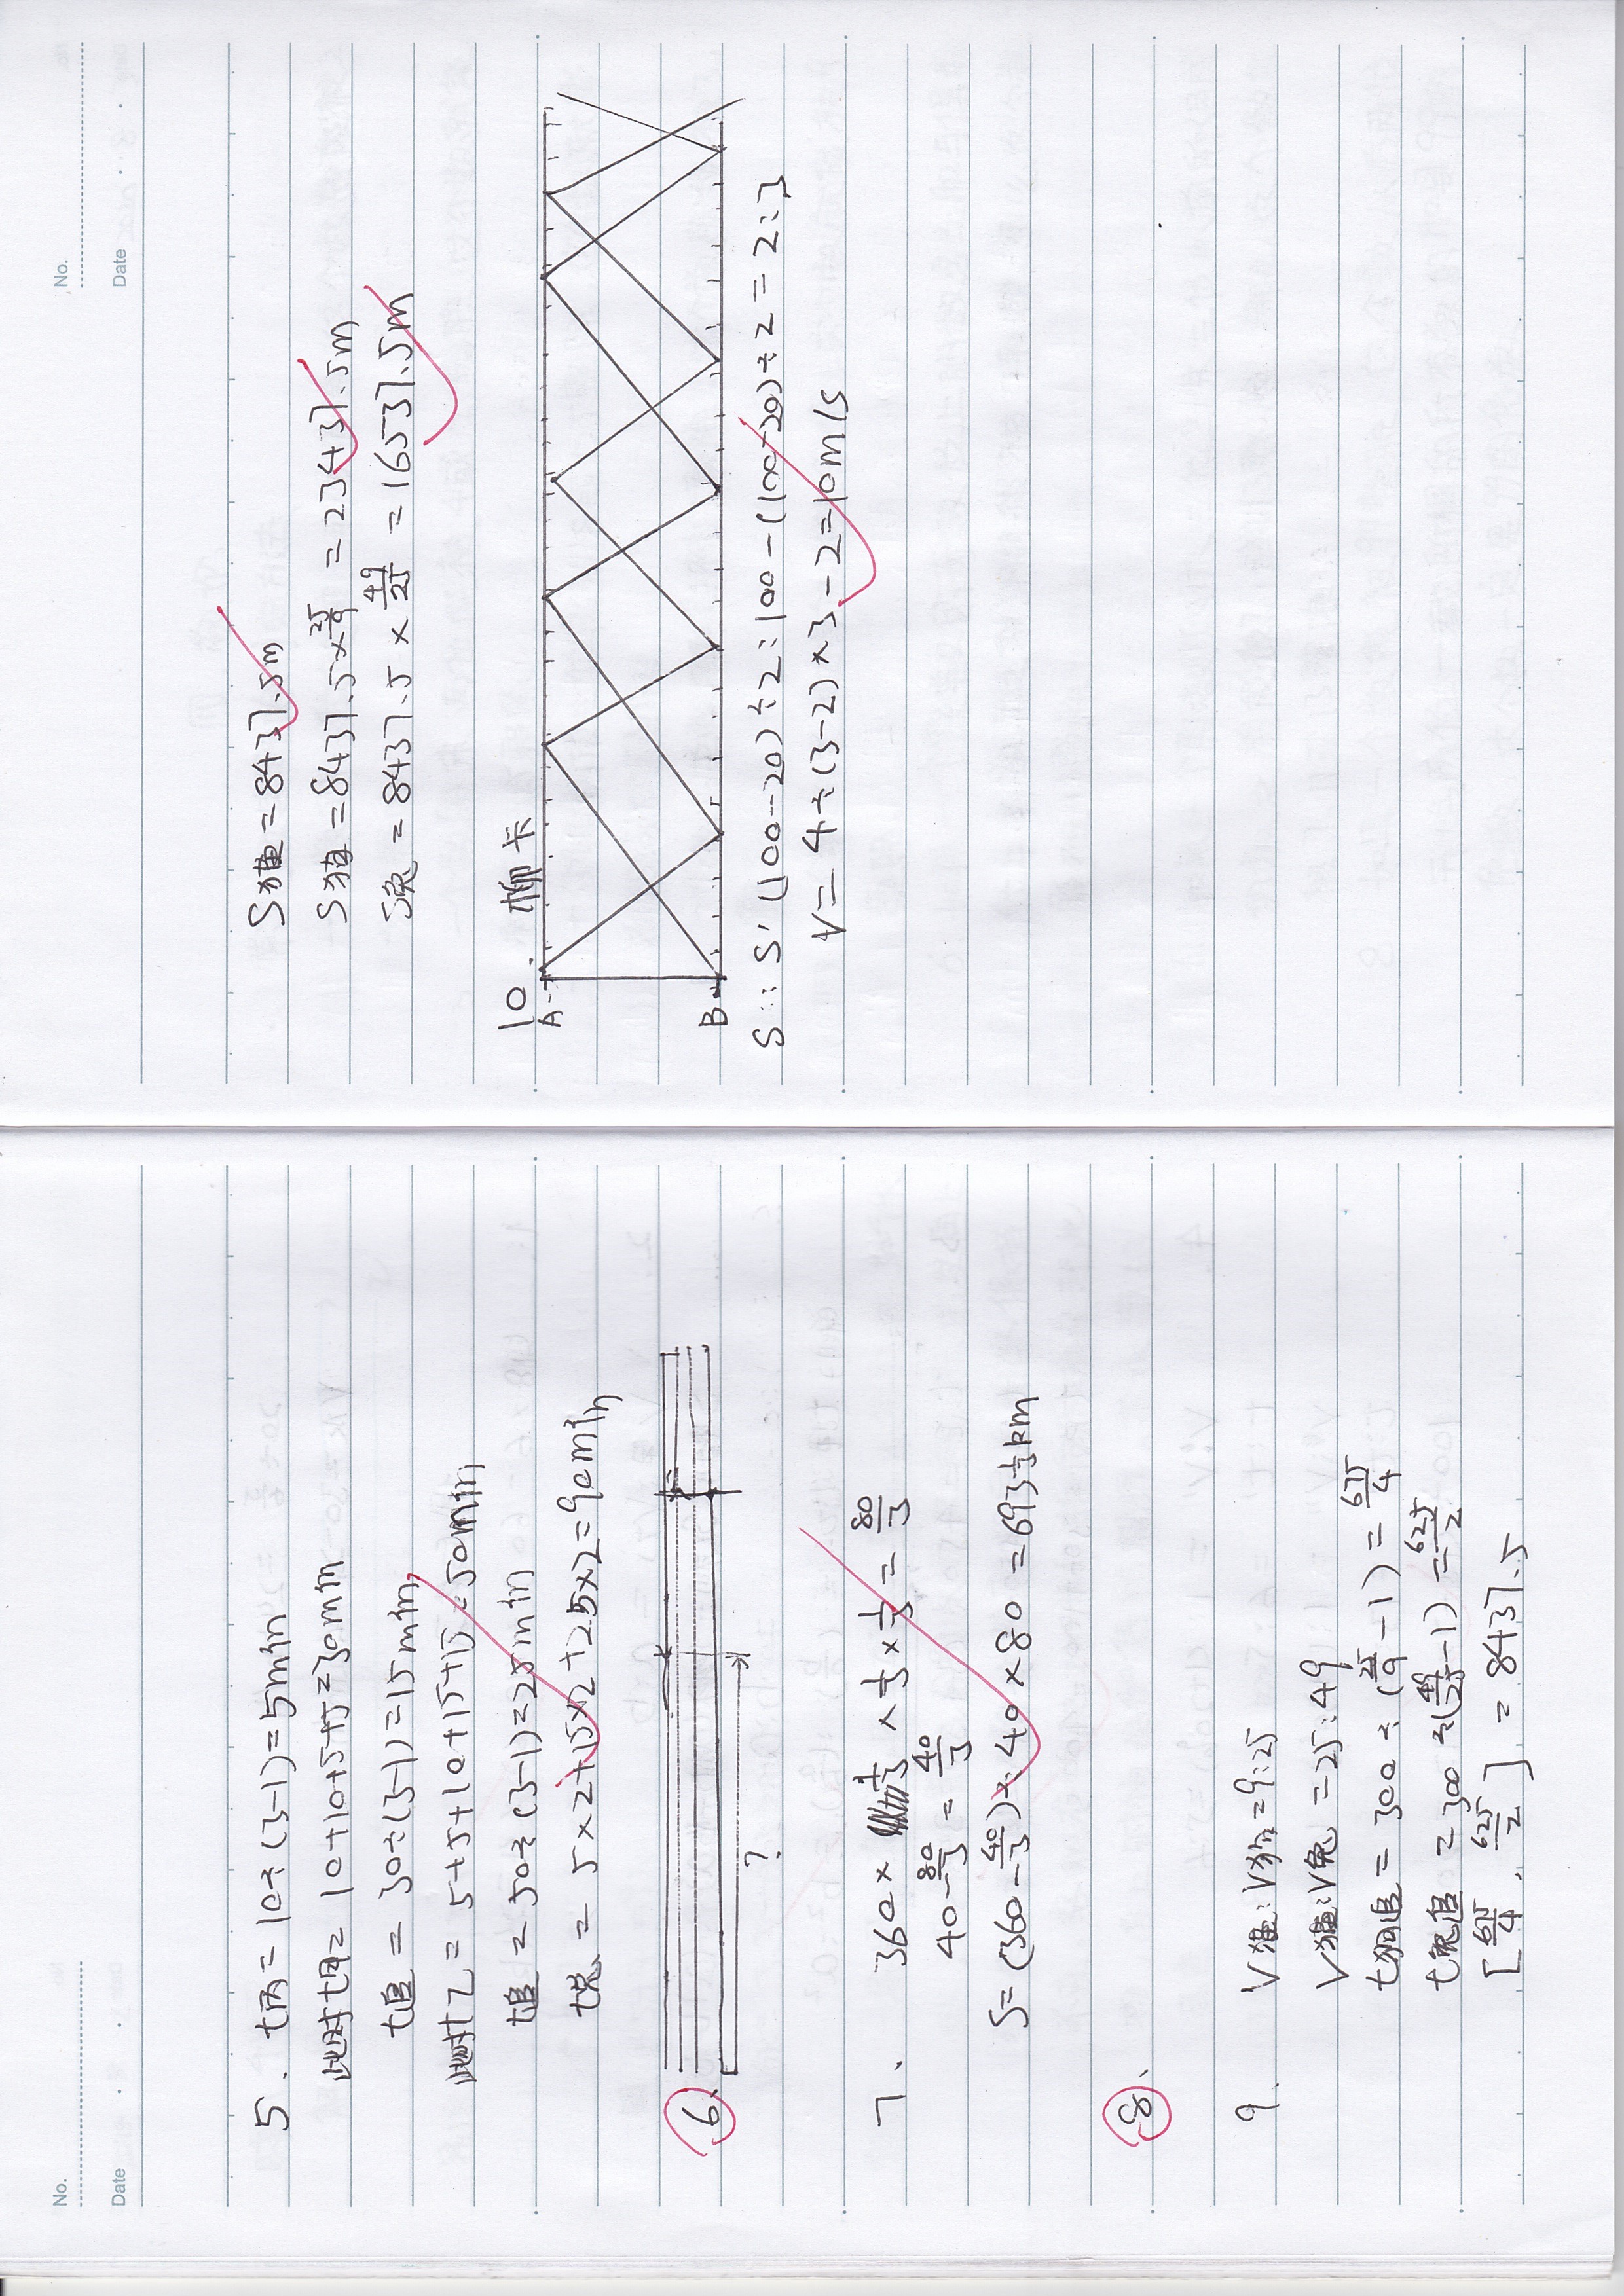 No.
Date
5. t丙=10÷(3-1)=5min
此时t甲=10+10+5+5=30min
t追=30÷(3-1)=15min
此时t乙=5+5+10+15+15=50min
t追=50÷(3-1)=25min
t总=5×2+15×2+25×2=90min
6.
?
7、360×1/3×1/3×1/3=80/3
40-80/3=40/3
S=(360-40/3)×40×80=693 1/3km
8、
9、V猫:V狗=9:25
V猫:V兔=25:49
t狗追=300÷(25/9-1)=675/4
t兔追=300÷(49/25-1)=625/2
[675/4, 625/2]=8437.5
No.
Date
S猫=8437.5m
S狗=8437.5×25/9=23437.5m
S兔=8437.5×49/25=16537.5m
10. 柳卡
A
B
S:S'(100-20)÷2:100-(100-20)÷2=2:3
V=4÷(3-2)×3-2=10m/s